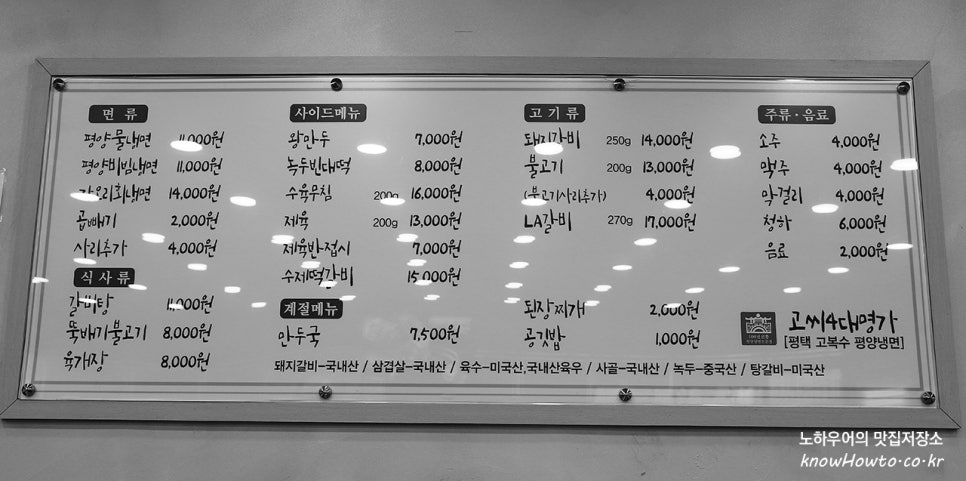 면 류
평양물냉면 11,000원
평양비빔냉면 11,000원
가오리회냉면 14,000원
곱빼기 2,000원
사리추가 4,000원
식 사 류
갈비탕 11,000원
뚝배기불고기 8,000원
육개장 8,000원
사이드메뉴
왕만두 7,000원
녹두빈대떡 8,000원
수육무침 200g 16,000원
제육 200g 13,000원
제육반접시 7,000원
수제떡갈비 15,000원
계절메뉴
만두국 7,500원
고 기 류
돼지갈비 250g 14,000원
불고기 200g 13,000원
(불고기사리추가) 4,000원
LA갈비 270g 17,000원
된장찌개 2,000원
공깃밥 1,000원
주류·음료
소주 4,000원
맥주 4,000원
막걸리 4,000원
청하 6,000원
음료 2,000원
고씨4대명가
[평택 고복수 평양냉면]
돼지갈비-국내산 / 삼겹살-국내산 / 육수-미국산,국내산육우 / 사골-국내산 / 녹두-중국산 / 탕갈비-미국산
노하우어의 맛집저장소
knowHowto.co.kr